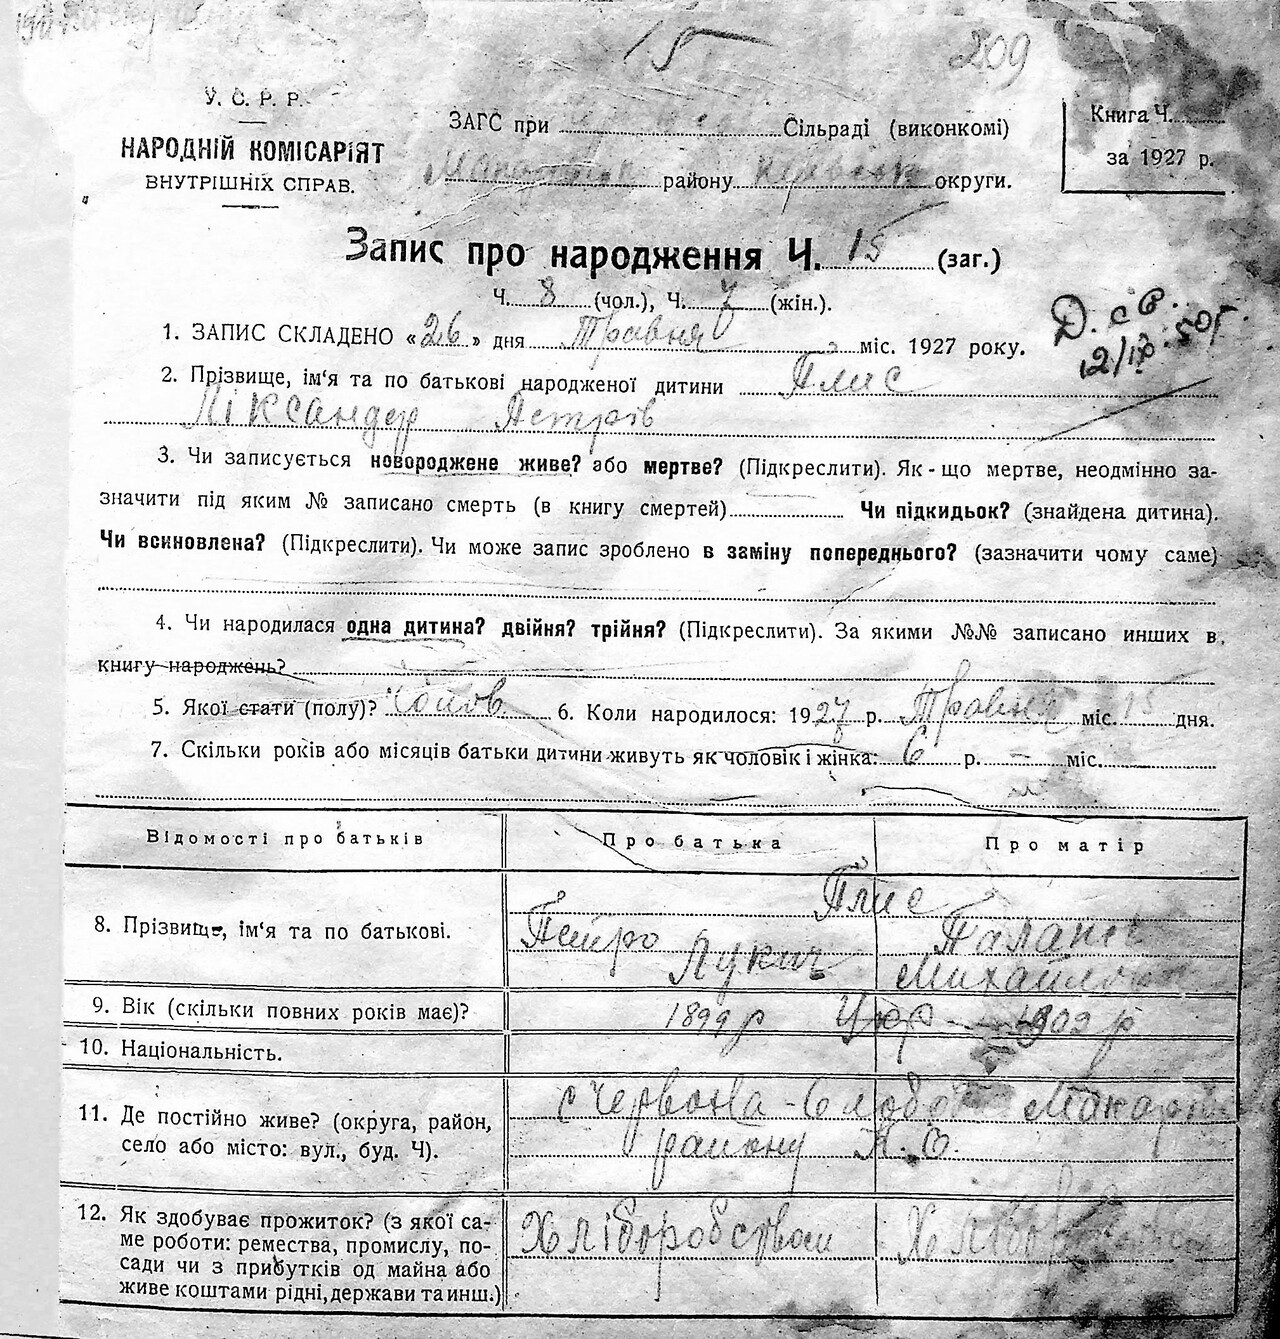 15
209
У. С. Р. Р.
НАРОДНІЙ КОМІСАРІЯТ
ВНУТРІШНІХ СПРАВ.
ЗАГС при Сільраді (виконкомі)
району округи.
Книга Ч.
за 1927 р.
Запис про народження Ч. 15 (заг.)
Ч. 8 (чол.), Ч. 7 (жін.).
Д. св.
12/IX 50 г.
1. ЗАПИС СКЛАДЕНО «26» дня Травня міс. 1927 року.
2. Прізвище, ім‘я та по батькові народженої дитини Плис
Ліксандер Петрів
3. Чи записується новороджене живе? або мертве? (Підкреслити). Як-що мертве, неодмінно за-
значити під яким № записано смерть (в книгу смертей) Чи підкидьок? (знайдена дитина).
Чи всиновлена? (Підкреслити). Чи може запис зроблено в заміну попереднього? (зазначити чому саме)
4. Чи народилася одна дитина? двійня? трійня? (Підкреслити). За якими №№ записано инших в
книгу народжень?
5. Якої стати (полу)? Чолов. 6. Коли народилося: 1927 р. Травня міс. 15 дня.
7. Скільки років або місяців батьки дитини живуть як чоловік і жінка: 6 р. — міс.
Відомості про батьків Про батька Про матір
Плис
8. Прізвище, ім‘я та по батькові. Петро Палажка
Лукич Михайловна
9. Вік (скільки повних років має)? 1899 р Укр 1902 р
10. Національність.
11. Де постійно живе? (округа, район, с Червона-Слобода Макарів
село або місто: вул., буд. Ч). району К. О.
12. Як здобуває прожиток? (з якої са- Хліборобством Хліборобством
ме роботи: ремества, промислу, по-
сади чи з прибутків од майна або
живе коштами рідні, держави та инш.)